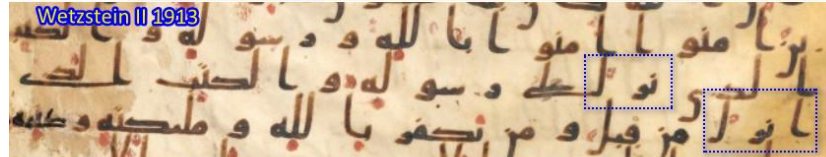 Wetzstein II 1913
ين امنوا امنوا بالله ورسوله والكتب
الذي نزل على رسوله والكتب الذي
انزل من قبل ومن يكفر بالله وملئكته وكتبه